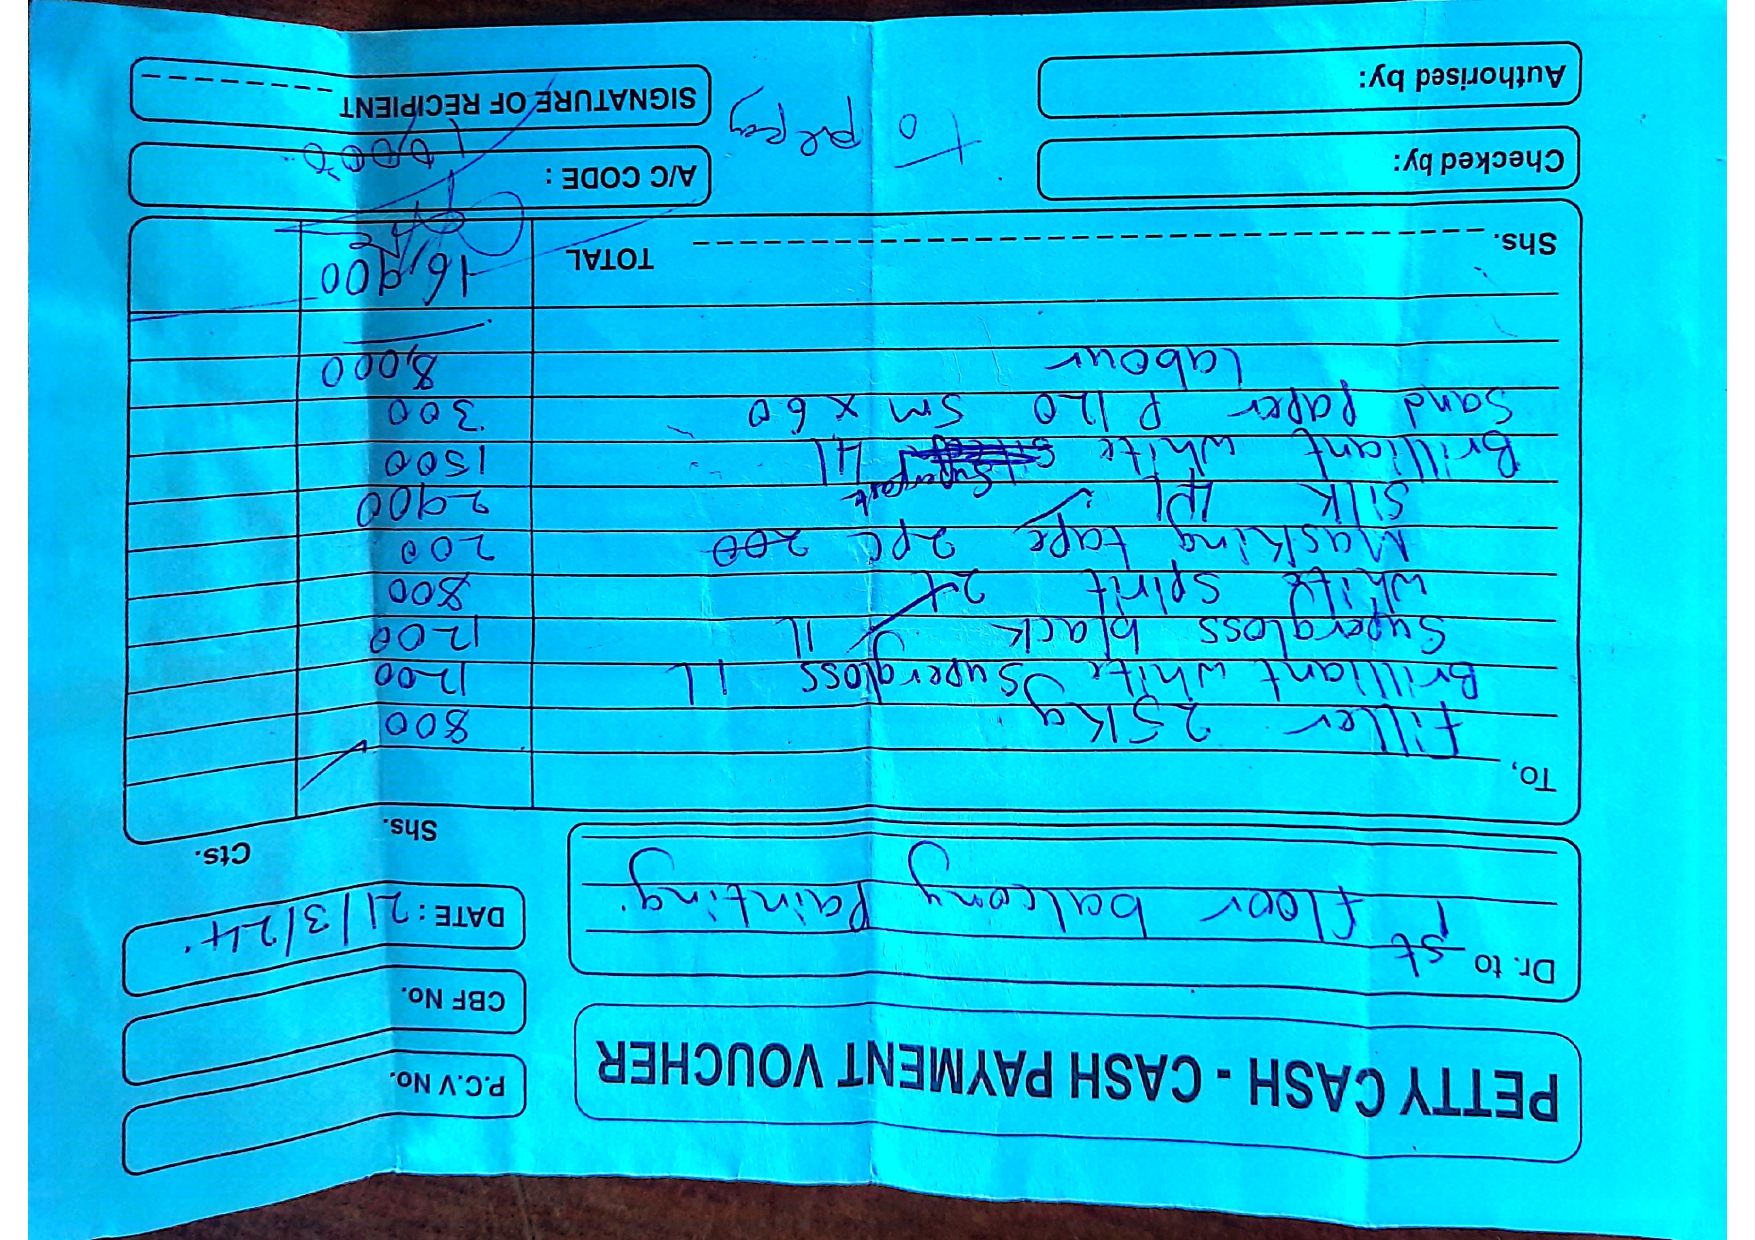 PETTY CASH - CASH PAYMENT VOUCHER
P.C.V No.
CBF No.
DATE: 21/3/24
Dr. to 1st floor balcony painting
Shs. Cts.
To,
Filler 25Kg 800
Brilliant white Supergloss 1L 1200
Supergloss black 1L 1200
White spirit 2L 800
Masking tape 2pc 200 200
Silk 4L 2900
Superfast
Brilliant white 4L 1500
Sand paper P120 5m x 60 300
Labour 8,000
Shs. TOTAL 16,900
Checked by:
A/C CODE:
to prepay
Authorised by:
SIGNATURE OF RECIPIENT